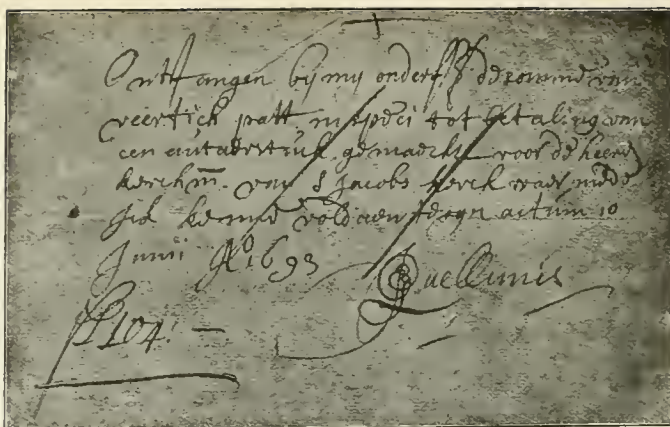 Ontfangen bij mij onders. de somme van
veertich patt in speci tot betaling van
een autaerstuk gemaeckt voor de heeren
kerckm. van S Jacobs kerck waer mede
ick kenne voldaen te syn actum 10
Junii Ao 1693 Quellinus
104